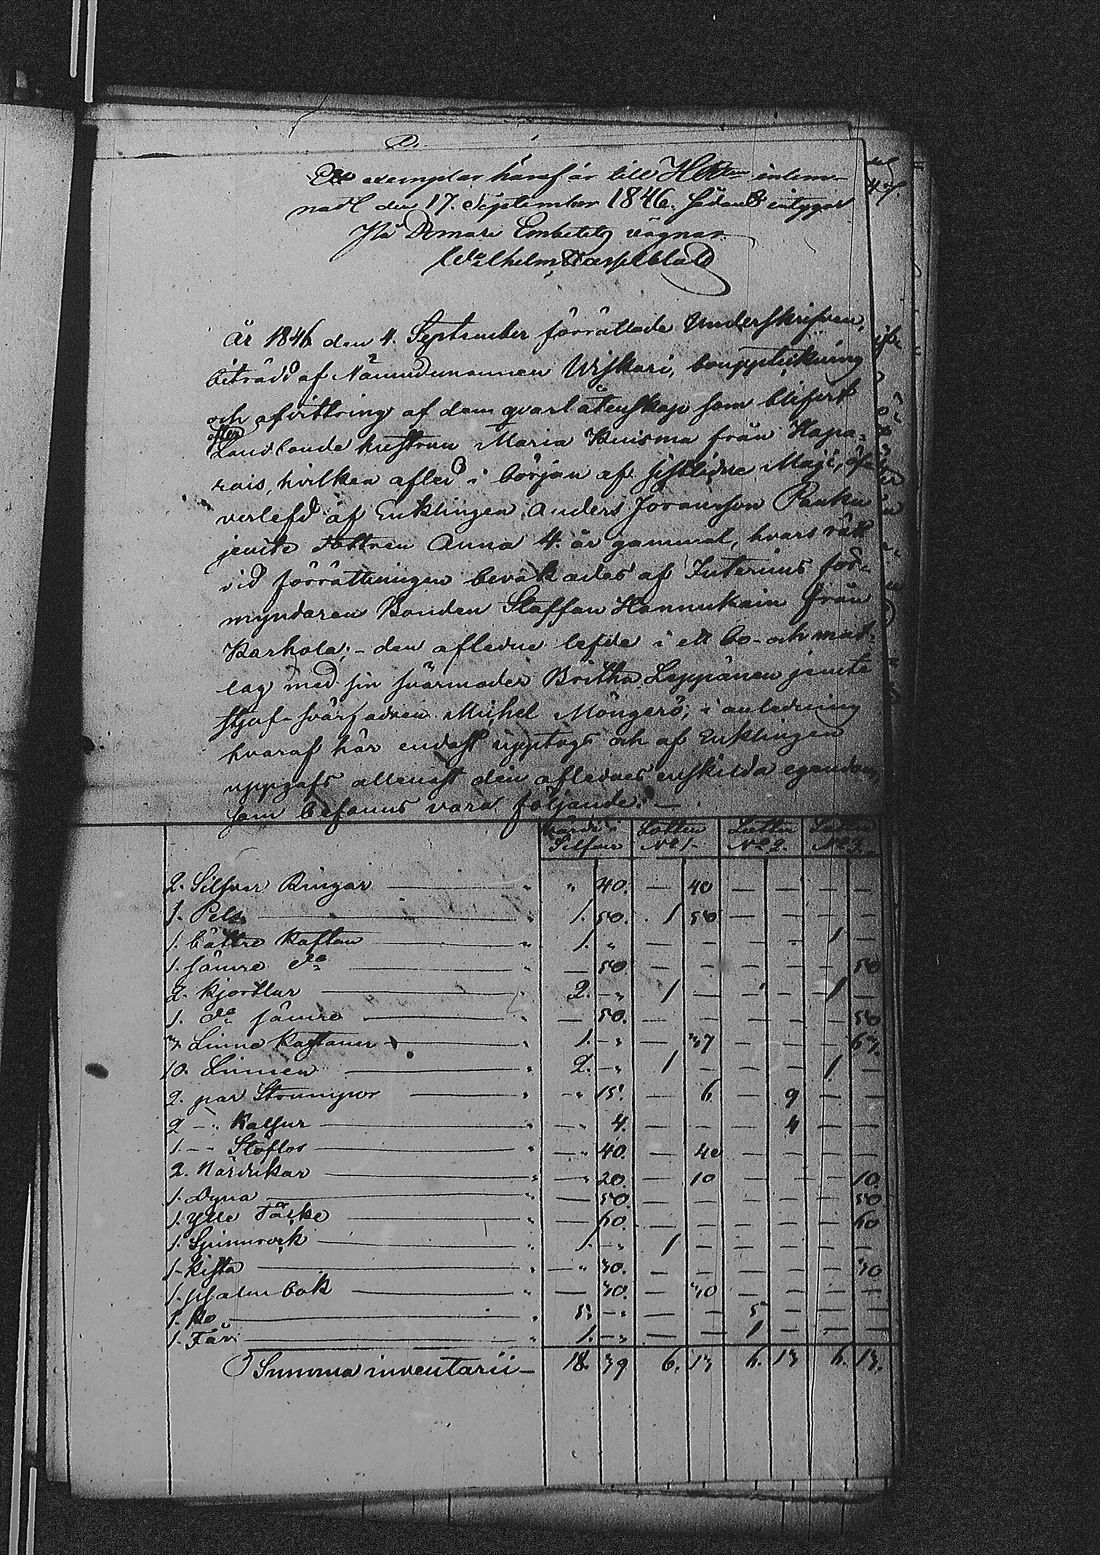 exemplar häraf är till inlem-
nadt den 17. September 1846. sådant intygar
På Domare Embetets vägnar.
Wilhelm Hasselblatt
År 1846 den 4. September förrättade Underskrifven,
biträdd af Nämndemannen Uiskari, bouppteckning
och afvittring af dem qvarlåtenskap som blifvit
efter
Landbonde hustrun Maria Kuisma från Hapa-
rais, hvilken afled i början af sistlidne Maji, öf-
verlefd af Enklingen Anders Joransson Paukku
jemte dottren Anna 4. år gammal, hvars rätt
vid förrättningen bevakades af Interims för-
myndaren Bonden Staffan Hannukain från
Karhola; - den aflidne lefde i ett bo- och mat-
lag med sin svärmoder Britha Leppänen jemte
styf-svärfadren Mickel Möngerö; i anledning
hvaraf här endast upptogs och af Enklingen
uppgafs allenast den aflidnes enskilda egendom,
som befanns vara följande: —
Värde i Silfver Lotten N° 1. Lotten N° 2. Lotten N° 3.
2. Silfver Ringar — " " 40. — 40 — — — —
1. Pels — " 1. 50. 1 50 — — — —
1. bättre Kaftan — " 1. " — — — — 1 —
1. sämre d:o — " — 50. — — — — — 50
2. Kjortlar — " 2. " 1 — — — 1 —
1. d:o sämre — " — 50. — — — — — 50
3. Linne Kaftaner — " 1. " — 37 — — — 63.
10. Linnen — " 2. " 1 — — — 1 —
2. par Strumpor — " " 15. — 6 — 9 — —
2 — " — " 4. — — — 4 — —
1. — " — " 40. — 40 — — — —
2. — " 20. — 10 — — — 10.
1. Dyna — " — 50. — — — — — 50.
1. Ylle Täcke — " — 60. — — — — — 60
1. Spinnrock — " 1. " 1 — — — — —
1. Kista — " " 30. — — — — — 30
1. psalmbok — " — 30. — 30 — — — —
1. Ko — " 5. " — — 5 — — —
1. Får — " 1. " — — 1 — — —
Summa inventarii — 18. 39 6. 13 6. 13 6. 13.